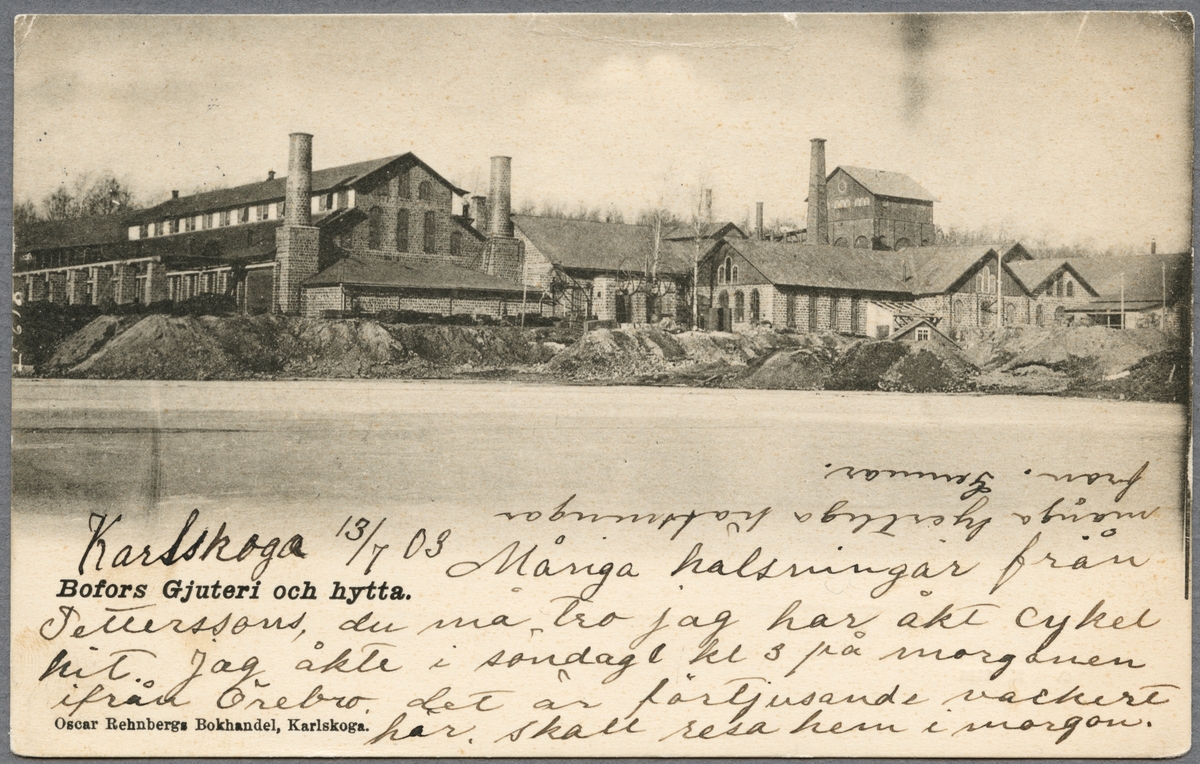 Karlskoga 13/7 03
Många hälsningar från
Bofors Gjuteri och hytta.
Petterssons, du må tro jag har åkt cykel
hit. Jag åkte i söndags kl 3 på morgonen
ifrån Örebro. det är förtjusande vackert
Oscar Rehnbergs Bokhandel, Karlskoga.
här. skall resa hem i morgon.
många hjertliga hälsningar
från.